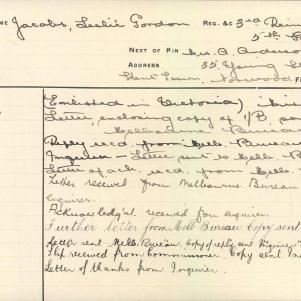 ME Jacobs, Leslie Gordon REG. &C 3rd Rein
5th
NEXT OF KIN Mrs. A. Anderson
ADDRESS 35 Young St
Kent Town, Norwood
Enlisted in Victoria)
Letter, enclosing copy of 1/B,
Melbourne Bureau
Reply recd. from Melb. Bureau
Inquirer - Letter sent to Melb. B
Letter of ack. recd. from Melb.
Letter received from Melbourne Bureau
Enquirer.
Acknowledg'nt. received from Enquirer.
Further letter from Melb Bureau Copy sent
Letter sent Melb. Bureau. Copy of reply sent Inquirer.
Slip received from Commissioner. Copy sent In
Letter of thanks from Inquirer.